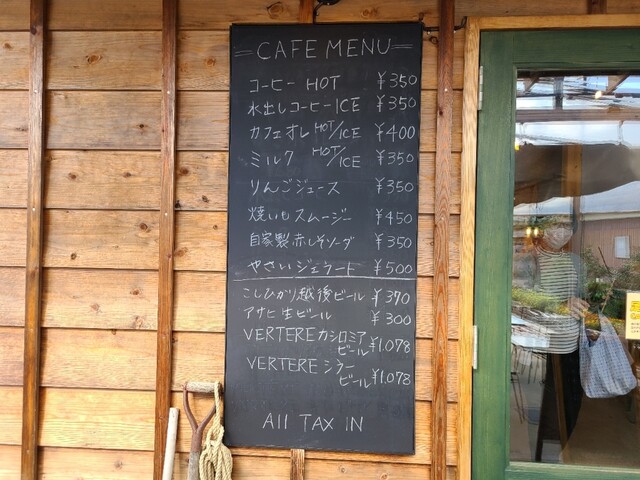 CAFE MENU
コーヒー HOT ¥350
水出しコーヒー ICE ¥350
カフェオレ HOT/ICE ¥400
ミルク HOT/ICE ¥350
りんごジュース ¥350
焼いもスムージー ¥450
自家製赤しそソーダ ¥350
やさいジェラート ¥500
こしひかり越後ビール ¥370
アサヒ生ビール ¥300
VERTERE カシロミア
ビール ¥1,078
VERTERE シラー
ビール ¥1,078
All TAX IN